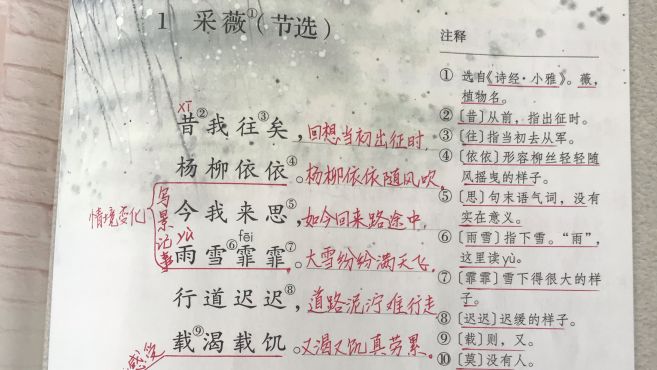 1 采薇①(节选)
xī
昔②我往③矣，回想当初出征时，
杨柳依依④。杨柳依依随风吹。
情境变化
写景记事
今我来思⑤，如今回来路途中，
yù fēi
雨雪⑥霏霏⑦。大雪纷纷满天飞。
行道迟迟⑧，道路泥泞难行走，
载⑨渴载饥。又渴又饥真劳累。
感受
注释
① 选自《诗经·小雅》。薇，
植物名。
②〔昔〕从前，指出征时。
③〔往〕指当初去从军。
④〔依依〕形容柳丝轻轻随
风摇曳的样子。
⑤〔思〕句末语气词，没有
实在意义。
⑥〔雨雪〕指下雪。“雨”，
这里读yù。
⑦〔霏霏〕雪下得很大的样
子。
⑧〔迟迟〕迟缓的样子。
⑨〔载〕则，又。
⑩〔莫〕没有人。